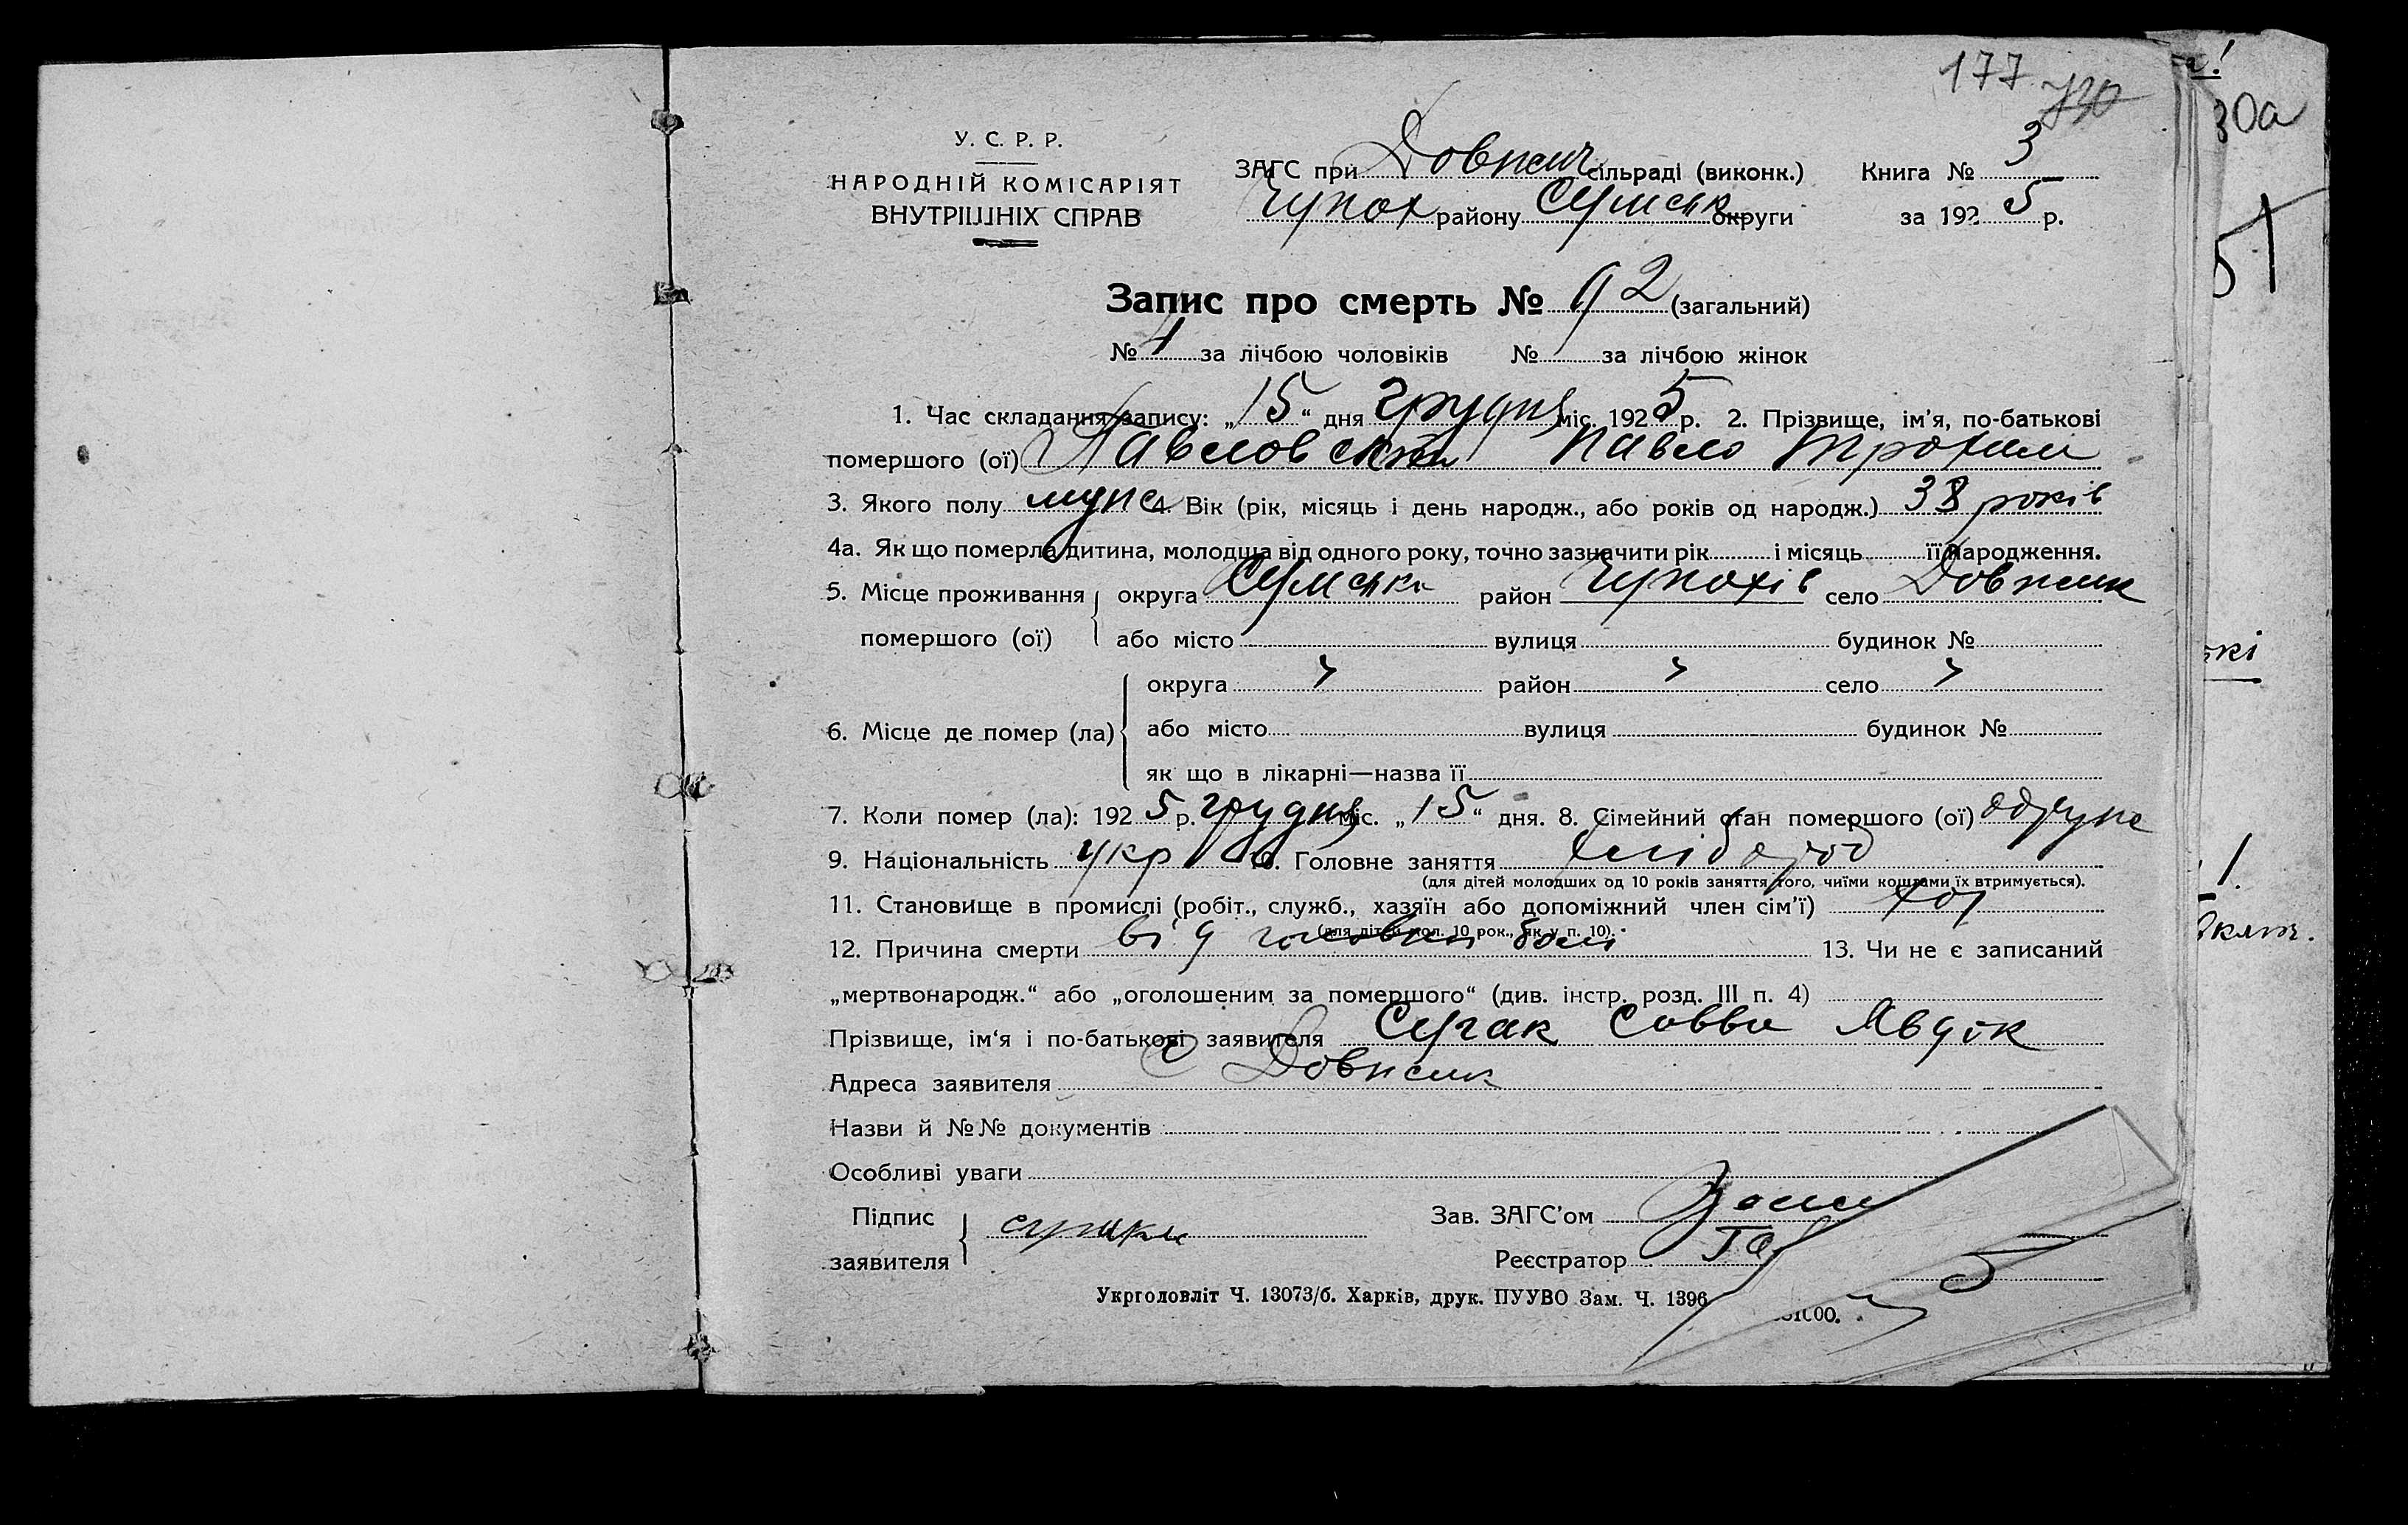 177 730
У. С. Р. Р.
НАРОДНІЙ КОМІСАРІЯТ
ВНУТРІШНІХ СПРАВ
ЗАГС при Довжич сільраді (виконк.) Книга № 3
Чупах району Сумськ округи за 192 5 р.
Запис про смерть № 92 (загальний)
№ за лічбою чоловіків № за лічбою жінок
1. Час складання запису: „ 15 “ дня грудня міс. 192 5 р. 2. Прізвище, ім’я, по-батькові
помершого (ої) Павловський Павло Трохим
3. Якого полу муж 4. Вік (рік, місяць і день народж., або років од народж.) 38 років
4а. Як що померла дитина, молодща від одного року, точно зазначити рік і місяць її народження.
5. Місце проживання округа Сумська район село Довжик
помершого (ої) або місто вулиця будинок №
округа район село
6. Місце де помер (ла) або місто вулиця будинок №
як що в лікарні—назва її
7. Коли помер (ла): 192 5 р. грудня міс. „ 15 “ дня. 8. Сімейний стан помершого (ої) одруже
9. Національність укр 10. Головне заняття хлібороб
(для дітей молодших од 10 років заняття того, чиїми коштами їх втримується).
11. Становище в промислі (робіт., служб., хазяїн або допоміжний член сім’ї) хоз
(для дітей мол. 10 рок., як у п. 10).
12. Причина смерти від головної болі 13. Чи не є записаний
„мертвонародж.“ або „оголошеним за помершого“ (див. інстр. розд. III п. 4)
Прізвище, ім‘я і по-батькові заявителя Сугак Савва Явдок
Адреса заявителя с Довжик
Назви й №№ документів
Особливі уваги
Підпис Зав. ЗАГС’ом
заявителя Реєстратор
Укрголовліт Ч. 13073/б. Харків, друк. ПУУВО Зам. Ч. 1396